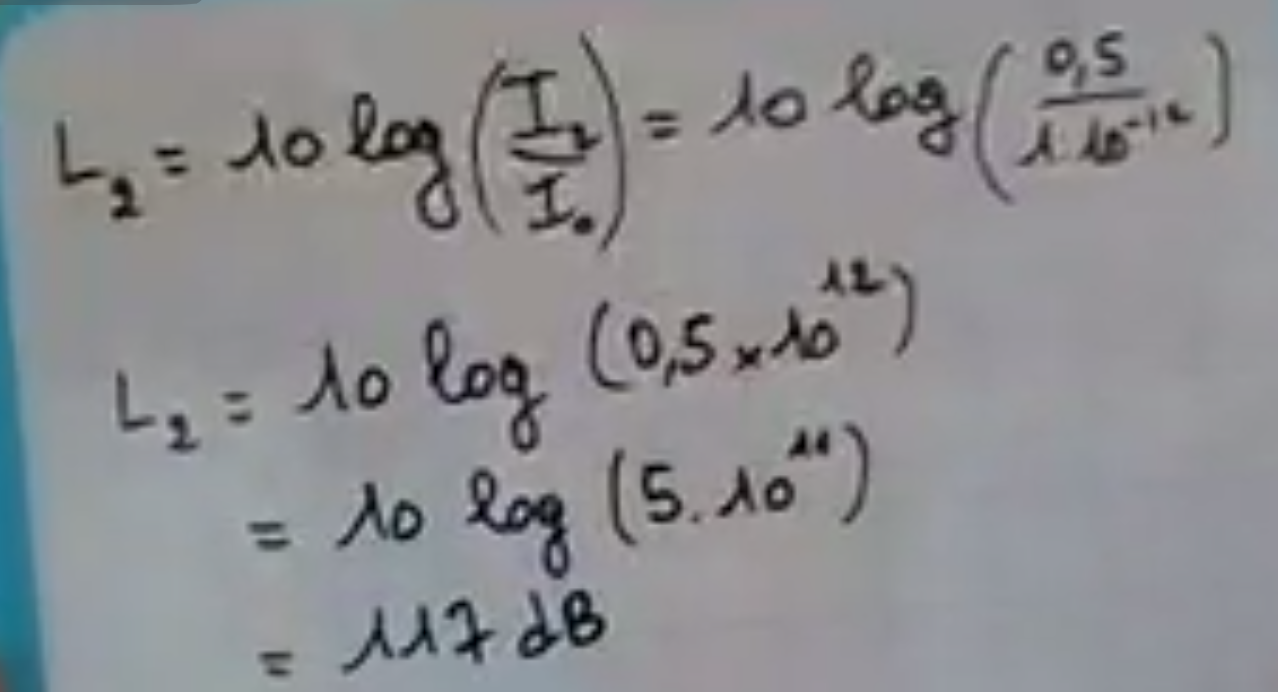 L₂ = 10 log(I₂/I₀) = 10 log(0,5/1.10⁻¹²)
L₂ = 10 log (0,5 × 10¹²)
= 10 log (5.10¹¹)
= 117 dB